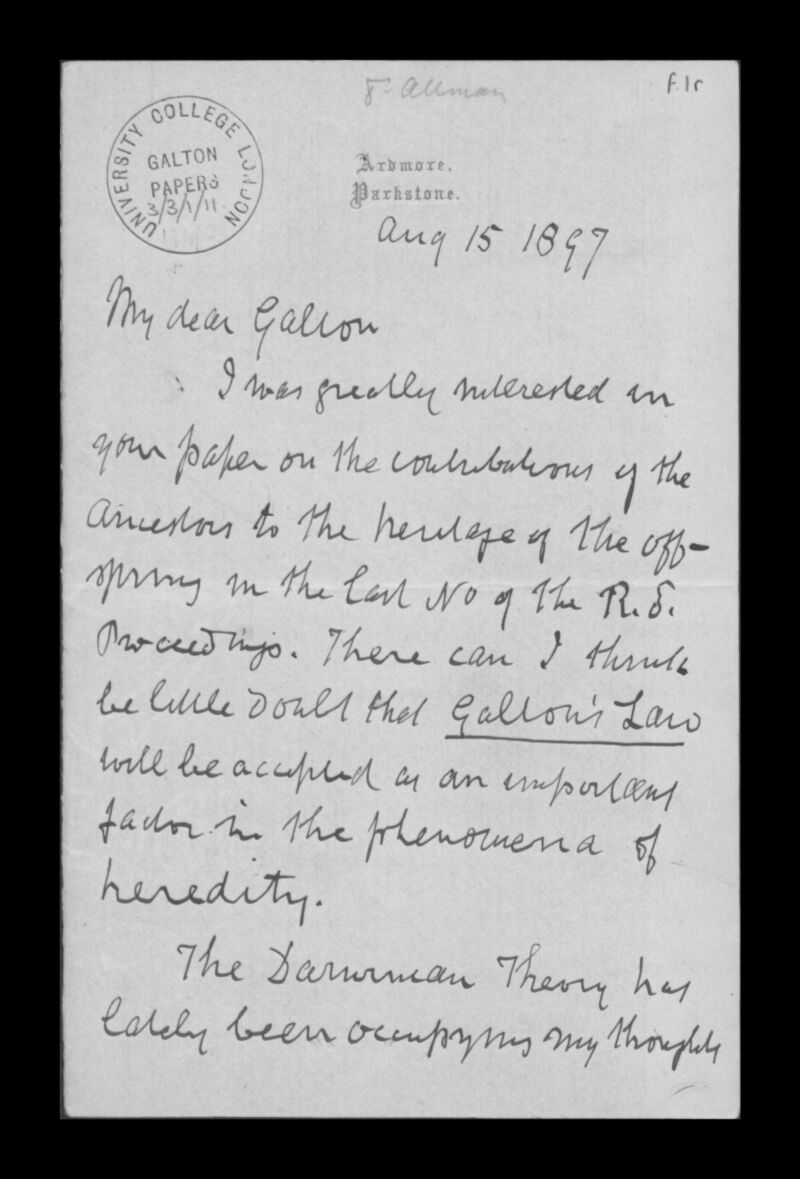 Allman
f.1r
UNIVERSITY COLLEGE LONDON
GALTON
PAPERS
3/3/1/11
Ardmore,
Parkstone.
Aug 15 1897
My dear Galton
I was greatly interested in
your paper on the contributions of the
Ancestors to the heritage of the off-
spring in the last No of the R.S.
Proceedings. There can I think
be little doubt that Galton's Law
will be accepted as an important
factor in the phenomena of
heredity.
The Darwinian Theory has
lately been occupying my thoughts